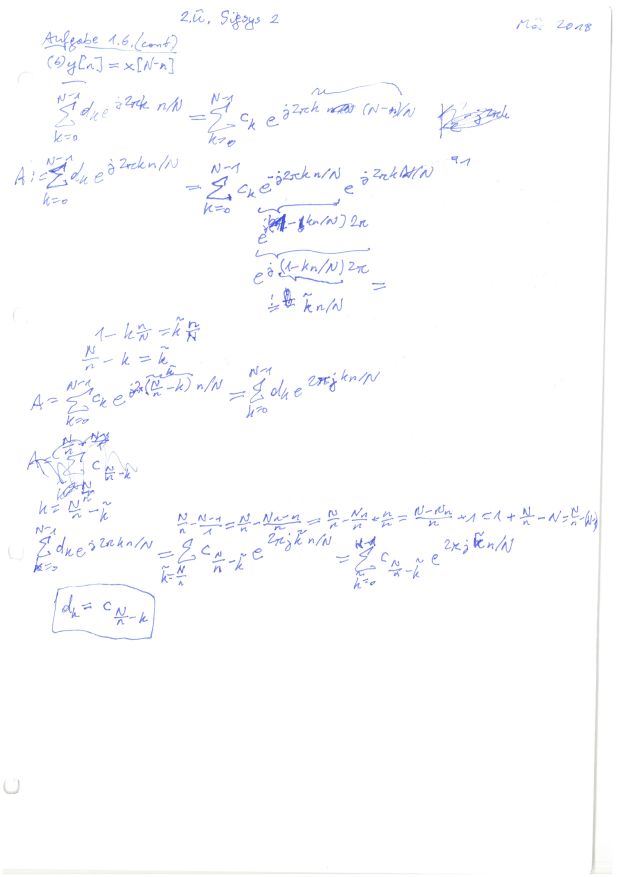 2.Ü. Sigsys 2 Mai 2018
Aufgabe 1.6.(cont)
(b) y[n] = x[N-n]
∑_{k=0}^{N-1} d_k e^{j2πk n/N} = ∑_{k=0}^{N-1} c_k e^{j2πk (N-n)/N}
A := ∑_{k=0}^{N-1} d_k e^{j2πkn/N} = ∑_{k=0}^{N-1} c_k e^{-j2πkn/N} e^{j2πkN/N} =1
e^{j(1-kn/N)2π} =
! = k̃ n/N
1 - k n/N = k̃ n/N
N/n - k = k̃
A = ∑_{k=0}^{N-1} c_k e^{j2π(N/n - k) n/N} = ∑_{k=0}^{N-1} d_k e^{2πjkn/N}
k = N/n - k̃
N/n - N-1/1 = N/n - Nn-n/n = N/n - Nn/n + n/n = N-Nn/n + 1 = 1 + N/n - N = N/n -(N-1)
∑_{k=0}^{N-1} d_k e^{j2πkn/N} = ∑_{k̃=N/n} c_{N/n - k̃} e^{2πjk̃n/N} = ∑_{k̃=0}^{N-1} c_{N/n - k̃} e^{2πjk̃n/N}
d_k = c_{N/n - k}